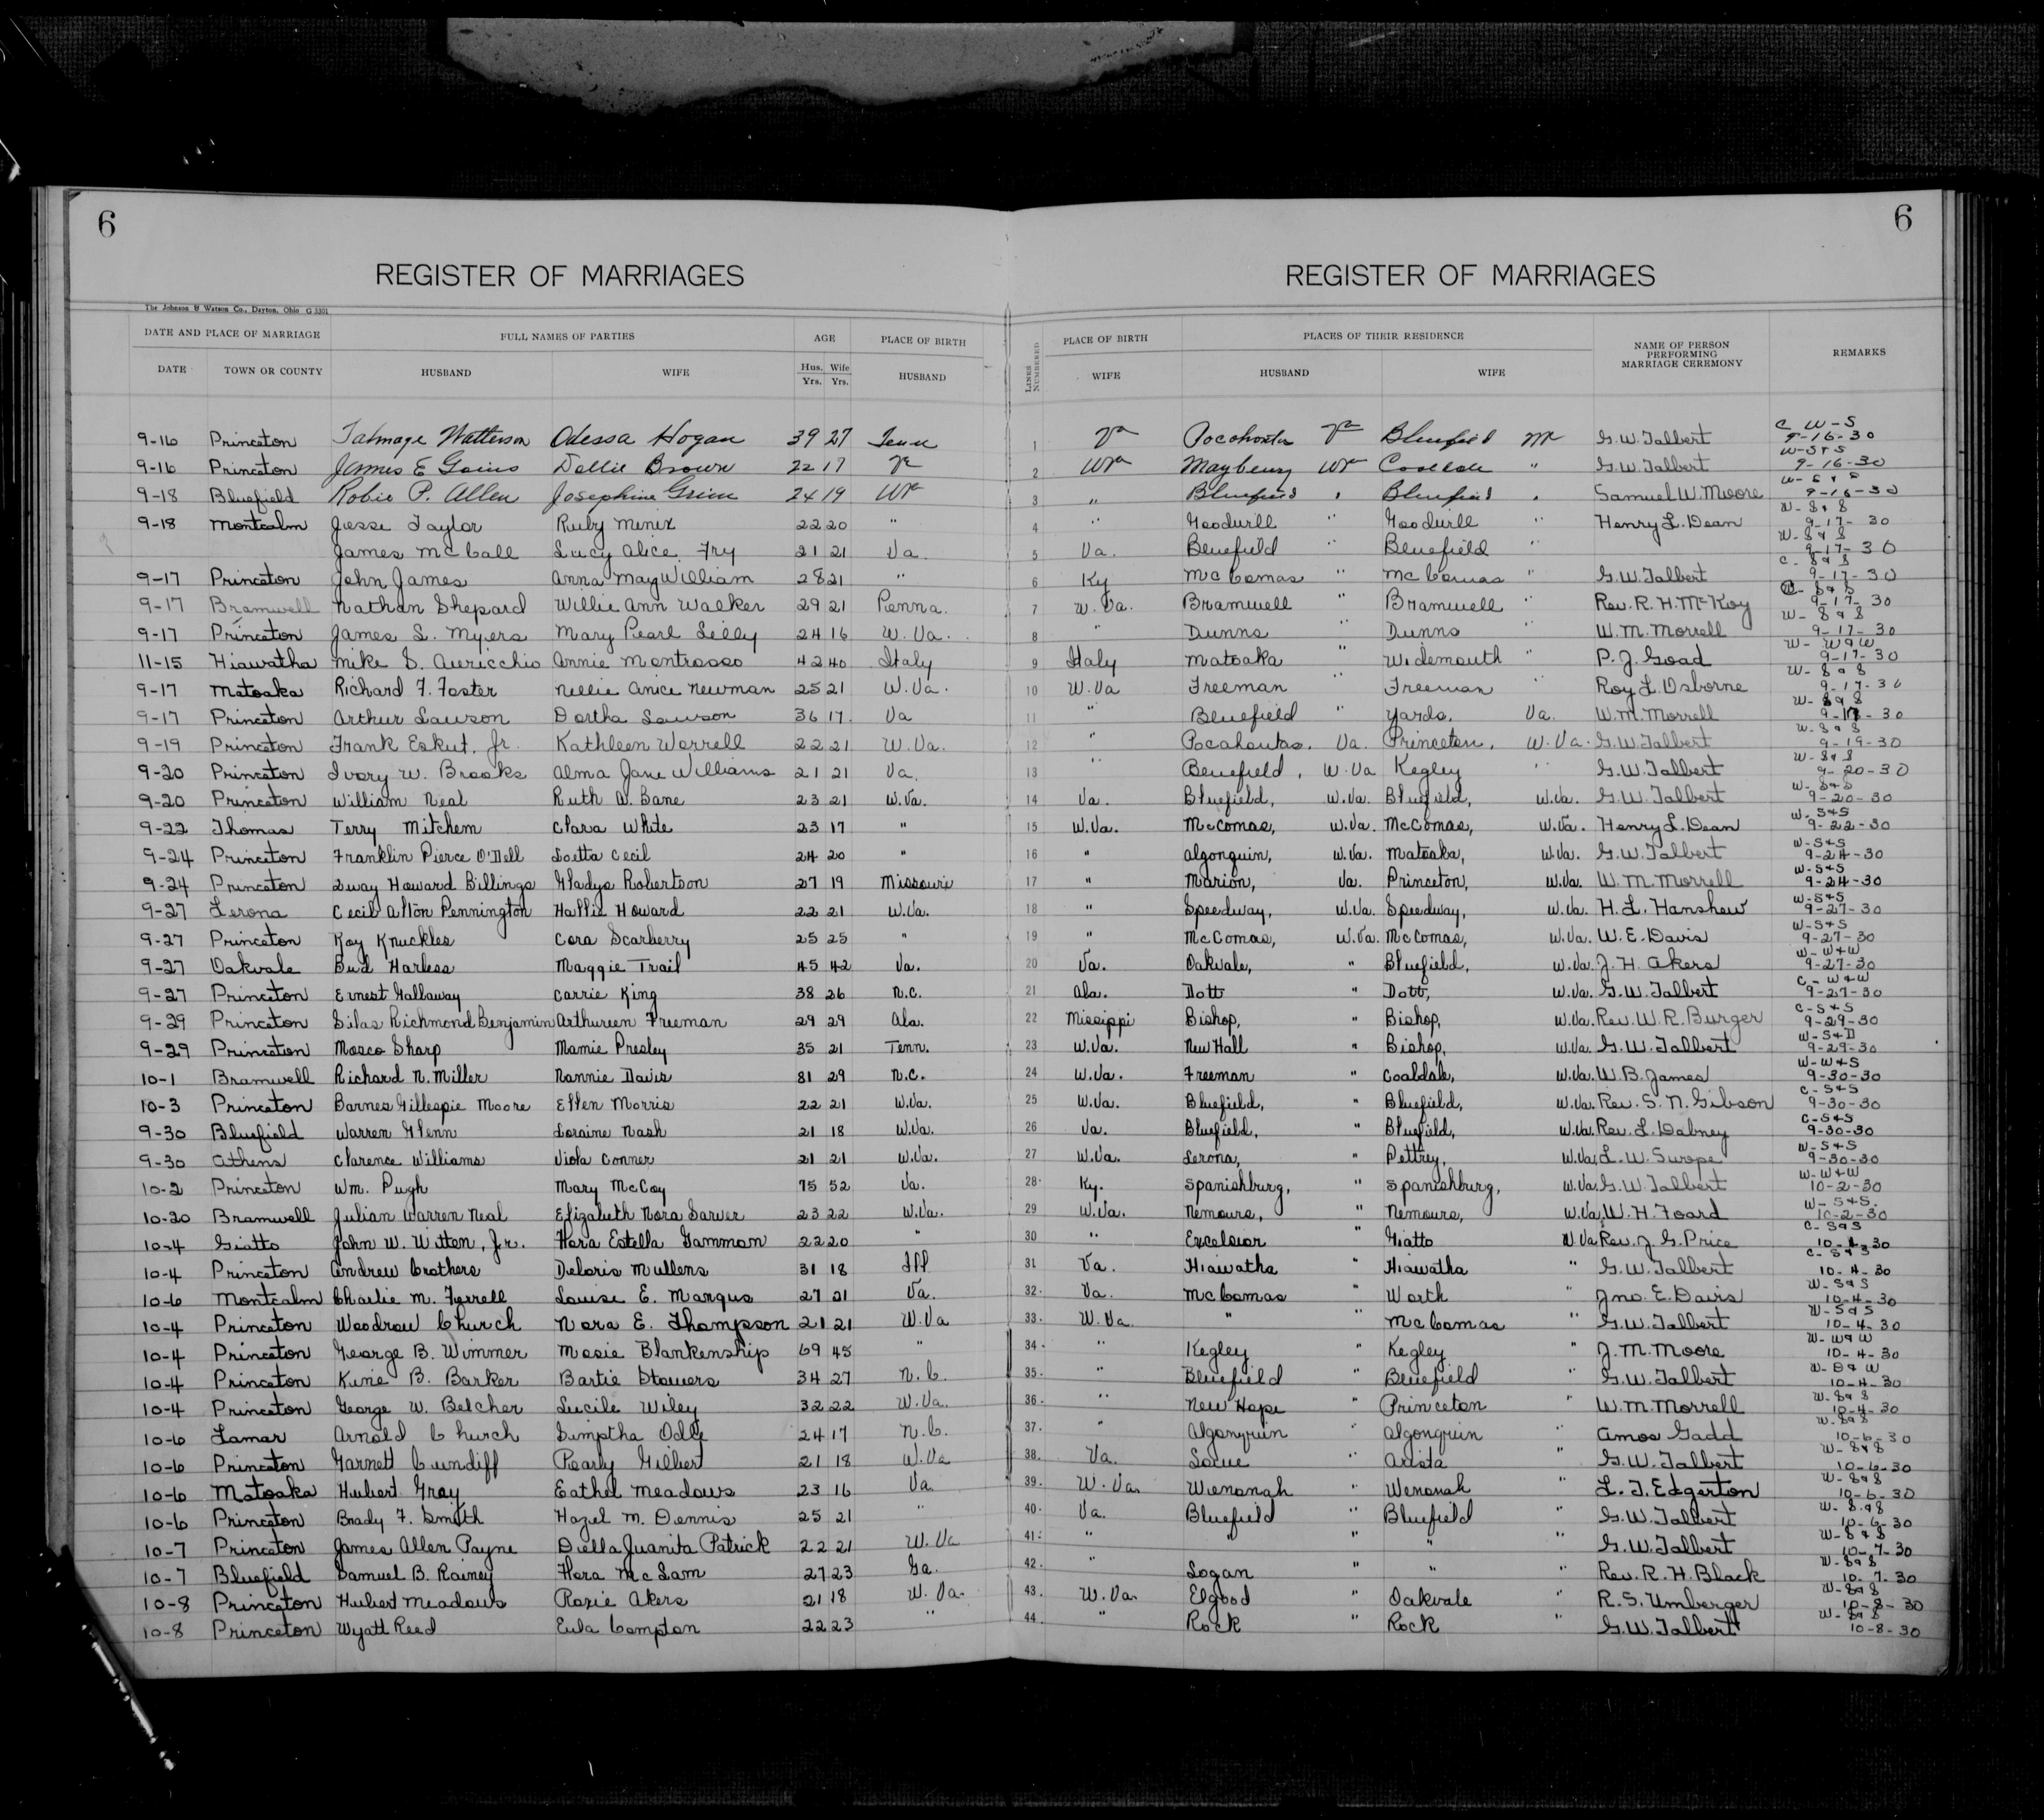 6
6
REGISTER OF MARRIAGES
REGISTER OF MARRIAGES
The Johnson & Watson Co., Dayton, Ohio G 3301
DATE AND PLACE OF MARRIAGE FULL NAMES OF PARTIES AGE PLACE OF BIRTH LINES NUMBERED PLACE OF BIRTH PLACES OF THEIR RESIDENCE NAME OF PERSON PERFORMING MARRIAGE CEREMONY REMARKS
DATE TOWN OR COUNTY HUSBAND WIFE Hus. Yrs. Wife Yrs. HUSBAND WIFE HUSBAND WIFE
9-16 Princeton Talmage Watterson Odessa Hogan 39 27 Tenn 1 Va Pocahontas Va Bluefield G.W. Talbert C W-S 9-16-30
9-16 Princeton James E Goins Dollie Brown 22 17 Va 2 WVa Maybeury WVa Coaldale " G.W. Talbert W-S&S 9-16-30
9-18 Bluefield Robie P. Allen Josephine Grim 24 19 WVa 3 " Bluefield " Bluefield " Samuel W. Moore W-S&S 9-16-30
9-18 Montcalm Jesse Taylor Ruby Minix 22 20 " 4 " Goodwill " Goodwill " Henry L. Dean W-S&S 9-17-30
James McCall Lucy Alice Fry 21 21 Va. 5 Va. Bluefield " Bluefield " W-S&S 9-17-30
9-17 Princeton John James Anna May William 28 21 " 6 Ky McComas " McComas " G.W. Talbert C-S&S 9-17-30
9-17 Bramwell Nathan Shepard Willie Ann Walker 29 21 Penna. 7 W.Va. Bramwell " Bramwell " Rev. R. H. McKoy C-S&S 9-17-30
9-17 Princeton James L. Myers Mary Pearl Lilly 24 16 W.Va. 8 " Dunns " Dunns " W.M. Morrell W-S&S 9-17-30
11-15 Hiawatha Mike S. Auricchio Annie Montrosso 42 40 Italy 9 Italy Matoaka " Widemouth " P.J. Goad W-W&W 9-17-30
9-17 Matoaka Richard F. Foster Nellie Anice Newman 25 21 W.Va. 10 W.Va Freeman " Freeman " Roy L. Osborne W-S&S 9-17-30
9-17 Princeton Arthur Lawson Dortha Lawson 36 17 Va 11 " Bluefield " Yards, Va. W.M. Morrell W-S&S 9-17-30
9-19 Princeton Frank Eskut, Jr. Kathleen Worrell 22 21 W.Va. 12 " Pocahontas, Va. Princeton, W.Va. G.W. Talbert W-S&S 9-19-30
9-20 Princeton Ivory W. Brooks Alma Jane Williams 21 21 Va. 13 " Bluefield, W.Va Kegley " G.W. Talbert W-S&S 9-20-30
9-20 Princeton William Neal Ruth A. Bane 23 21 W.Va. 14 Va. Bluefield, W.Va. Bluefield, W.Va. G.W. Talbert W-S&S 9-20-30
9-22 Thomas Terry Mitchem Clara White 23 17 " 15 W.Va. McComas, W.Va. McComas, W.Va. Henry L. Dean W-S&S 9-22-30
9-24 Princeton Franklin Pierce O'Dell Loetta Cecil 24 20 " 16 " Algonquin, W.Va. Matoaka, W.Va. G.W. Talbert W-S&S 9-24-30
9-24 Princeton Dway Howard Billings Gladys Robertson 27 19 Missouri 17 " Marion, Va. Princeton, W.Va. W.M. Morrell W-S&S 9-24-30
9-27 Lerona Cecil Alton Pennington Hallie Howard 22 21 W.Va. 18 " Speedway, W.Va. Speedway, W.Va. H.L. Hanshew W-S&S 9-27-30
9-27 Princeton Roy Knuckles Cora Scarberry 25 25 " 19 " McComas, W.Va. McComas, W.Va. W.E. Davis W-S&S 9-27-30
9-27 Oakvale Bud Harless Maggie Trail 45 42 Va. 20 Va. Oakvale, " Bluefield, W.Va. J.H. Akers W-W&W 9-27-30
9-27 Princeton Ernest Gallaway Carrie King 38 26 N.C. 21 Ala. Dott " Dott, W.Va. G.W. Talbert C-W&W 9-27-30
9-29 Princeton Silas Richmond Benjamin Arthureen Freeman 29 29 Ala. 22 Missippi Bishop, " Bishop, W.Va. Rev. W.R. Burger C-S&S 9-29-30
9-29 Princeton Mosco Sharp Mamie Presley 35 21 Tenn. 23 W.Va. New Hall " Bishop, W.Va. G.W. Talbert W-S&D 9-29-30
10-1 Bramwell Richard N. Miller Nannie Davis 81 29 N.C. 24 W.Va. Freeman " Coaldale, W.Va. W.B. James W-W&S 9-30-30
10-3 Princeton Barnes Gillespie Moore Ellen Morris 22 21 W.Va. 25 W.Va. Bluefield, " Bluefield, W.Va. Rev. S.N. Gibson C-S&S 9-30-30
9-30 Bluefield Warren Glenn Loraine Nash 21 18 W.Va. 26 Va. Bluefield, " Bluefield, W.Va. Rev. L. Dabney C-S&S 9-30-30
9-30 Athens Clarence Williams Viola Conner 21 21 W.Va. 27 W.Va. Lerona, " Pettrey, W.Va. L.W. Swope W-S&S 9-30-30
10-2 Princeton Wm. Pugh Mary McCoy 75 52 Va. 28. Ky. Spanishburg, " Spanishburg, W.Va. G.W. Talbert W-W&W 10-2-30
10-20 Bramwell Julian Warren Neal Elizabeth Nora Sarver 23 22 W.Va. 29 W.Va. Nemours, " Nemours, W.Va. W.H. Foard W-S&S. 10-2-30
10-4 Giatto John W. Witten, Jr. Flora Estella Gammon 22 20 " 30 " Excelsior " Giatto W.Va Rev. J.G. Price C-S&S 10-4-30
10-4 Princeton Andrew Crothers Deloris Mullens 31 18 Ill 31 Va. Hiawatha " Hiawatha " G.W. Talbert C-S&S 10-4-30
10-6 Montcalm Charlie M. Ferrell Louise E. Marqus 27 21 Va. 32. Va. McComas " Worth " Jno. E. Davis W-S&S 10-4-30
10-4 Princeton Woodrow Church Nora E. Thompson 21 21 W.Va 33. W.Va " " McComas " G.W. Talbert W-S&S 10-4-30
10-4 Princeton George B. Wimmer Mosie Blankenship 69 45 " 34. " Kegley " Kegley " J.M. Moore W-W&W 10-4-30
10-4 Princeton Kinie B. Barker Bartie Stowers 34 27 N.C. 35. " Bluefield " Bluefield " G.W. Talbert W-D&W 10-4-30
10-4 Princeton George W. Belcher Lucile Wiley 32 22 W.Va. 36. " New Hope " Princeton " W.M. Morrell W-S&S 10-4-30
10-6 Lamar Arnold Church Simptha Odle 24 17 N.C. 37. " Algonquin " Algonquin " Amos Gadd W-S&S 10-6-30
10-6 Princeton Garnett Cundiff Pearly Gilbert 21 18 W.Va 38. Va. " Arista " G.W. Talbert W-S&S 10-6-30
10-6 Matoaka Hubert Gray Eathel Meadows 23 16 Va. 39. W.Va. Wenonah " Wenonah " L.T. Edgerton W-S&S 10-6-30
10-6 Princeton Brady F. Smith Hazel M. Dennis 25 21 " 40. Va. Bluefield " Bluefield " G.W. Talbert W-S&S 10-6-30
10-7 Princeton James Allen Payne Della Juanita Patrick 22 21 W.Va 41. " " " " " G.W. Talbert W-S&S 10-7-30
10-7 Bluefield Samuel B. Rainey Flora McLam 27 23 Ga. 42. " Logan " " " Rev. R.H. Black W-S&S 10-7-30
10-8 Princeton Hubert Meadows Rosie Akers 21 18 W.Va. 43. W.Va. Elgood " Oakvale " R.S. Umberger W-S&S 10-8-30
10-8 Princeton Wyatt Reed Eula Compton 22 23 " 44. " Rock " Rock " G.W. Talbert W-S&S 10-8-30